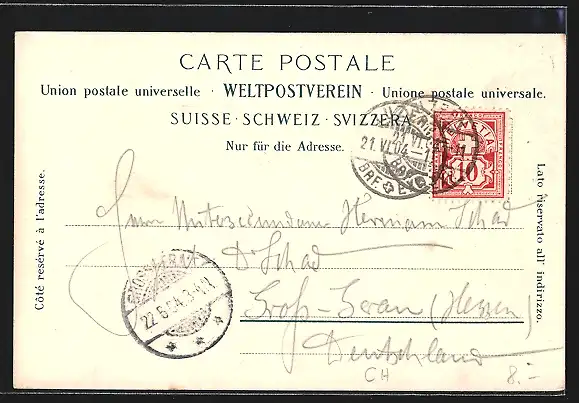 CARTE POSTALE
Union postale universelle · WELTPOSTVEREIN · Unione postale universale.
SUISSE · SCHWEIZ · SVIZZERA
Nur für die Adresse.
Côté reservé à l'adresse.
Lato riservato all' indirizzo.
HELVETIA
10
LUZERN
21.VI.04
BRF.
Herrn Untersecundaner Hermann Schad
Dr Schad
Gross-Gerau (Hessen)
Deutschland
GROSSGERAU
22.6.04.
CH
8.-